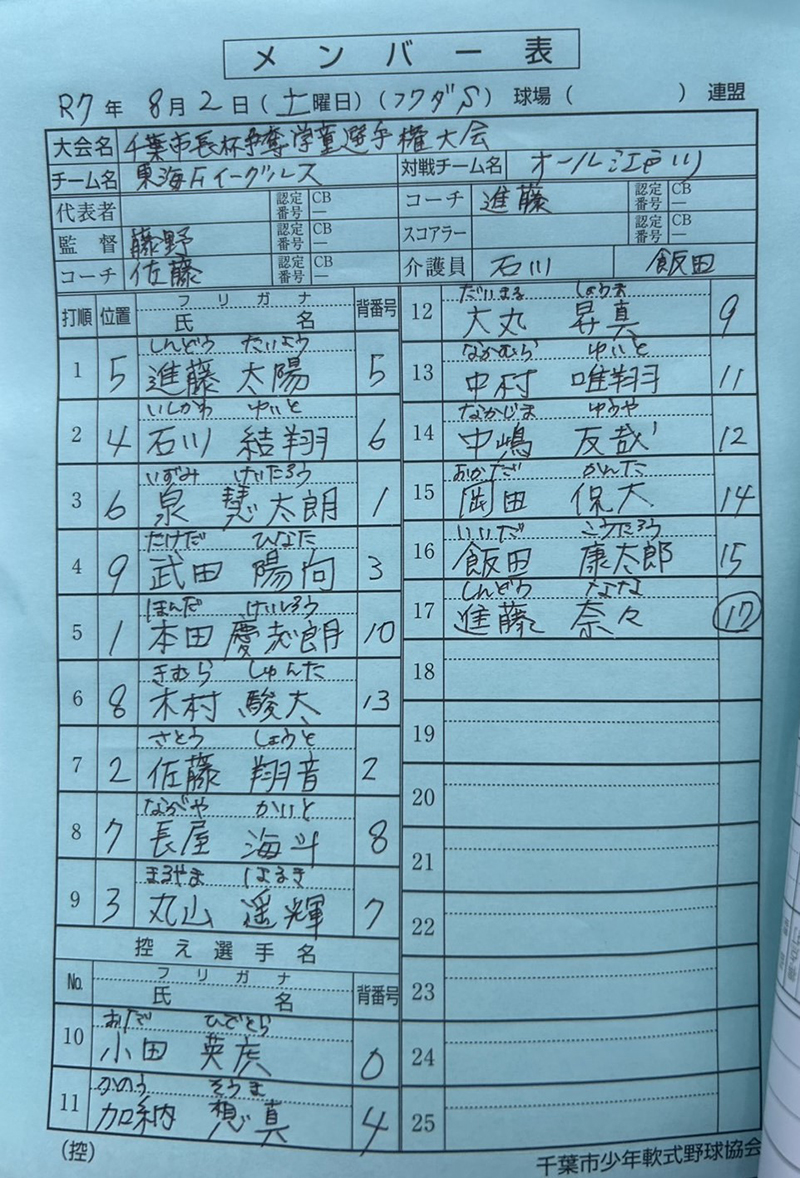 メンバー表
R7年 8月2日(土曜日)(フクダS)球場( )連盟
大会名 千葉市長杯争奪学童選手権大会
チーム名 東海Fイーグルス 対戦チーム名 オール江戸川
代表者 認定番号 CB ― コーチ 進藤 認定番号 CB ―
監督 藤野 認定番号 CB ― スコアラー 認定番号 CB ―
コーチ 佐藤 認定番号 CB ― 介護員 石川 飯田
打順 位置 フリガナ 氏名 背番号
しんどう たいよう
1 5 進藤 太陽 5
いしかわ ゆいと
2 4 石川 結翔 6
いずみ けいたろう
3 6 泉 慧太朗 1
たけだ ひなた
4 9 武田 陽向 3
ほんだ けいしろう
5 1 本田 慶志朗 10
きむら しゅんた
6 8 木村 駿太 13
さとう しょうと
7 2 佐藤 翔音 2
ながや かいと
8 7 長屋 海斗 8
まるやま はるき
9 3 丸山 遥輝 7
控え選手名
No. フリガナ 氏名 背番号
おだ ひでとら
10 小田 英虎 0
かのう そうま
11 加納 想真 4
だいまる しょうま
12 大丸 昇真 9
なかむら ゆいと
13 中村 唯翔 11
なかじま ゆうや
14 中嶋 友哉 12
おかだ かんた
15 岡田 保大 14
いいだ こうたろう
16 飯田 康太郎 15
しんどう なな
17 進藤 奈々 17
18
19
20
21
22
23
24
25
(控)
千葉市少年軟式野球協会